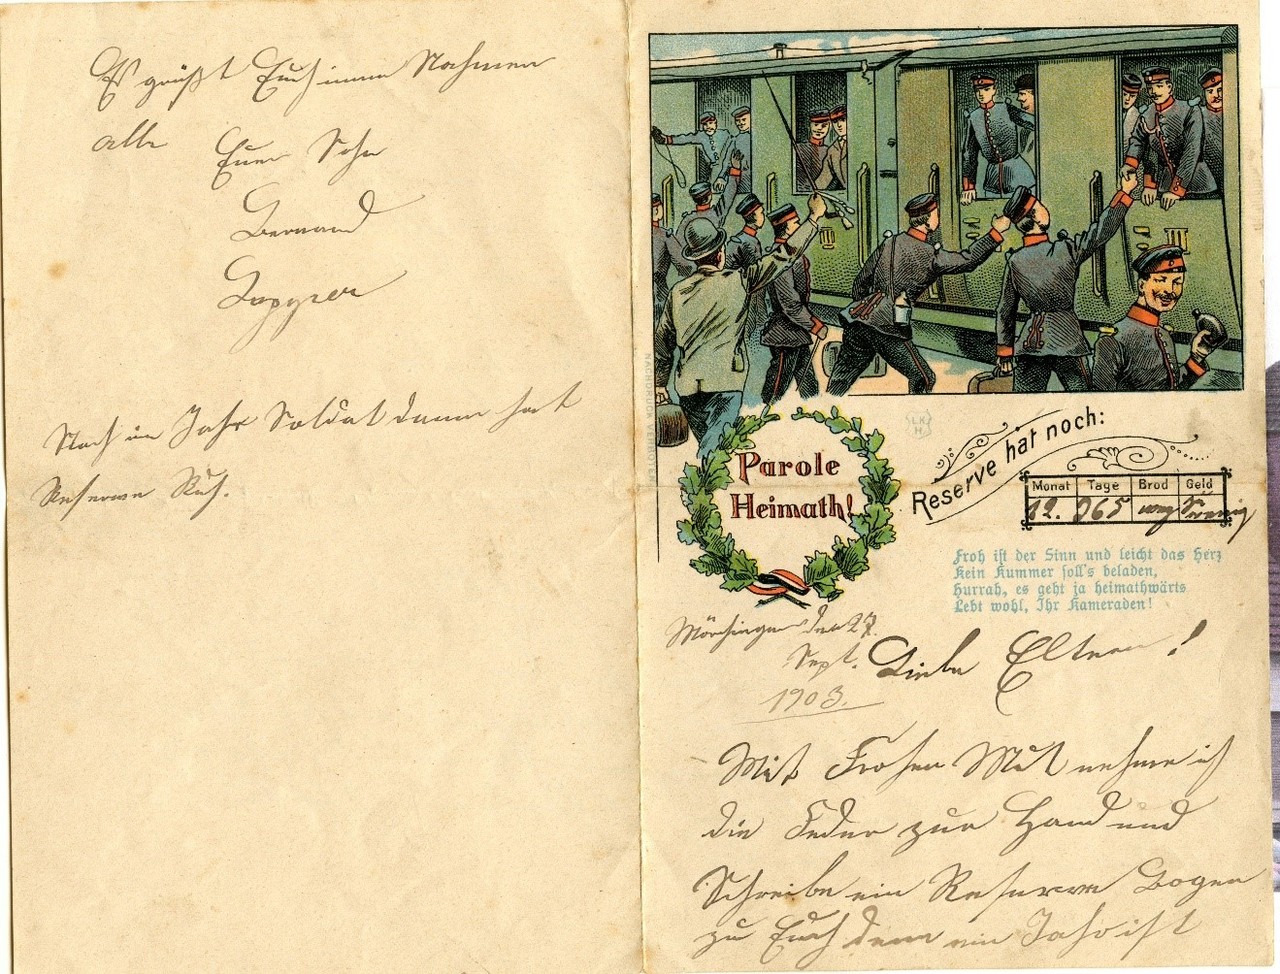 Es grüßt Euch immer Nahmen
alle
Euer Sohn
Bernard
Noch ein Jahr Soldat dann hat
Reserve Ruh.
Parole
Heimath!
Reserve hat noch:
Monat Tage Brod Geld
12. 365 weg wenig
Froh ist der Sinn und leicht das Herz
Kein Kummer soll's beladen,
Hurrah, es geht ja heimathwärts
Lebt wohl, Ihr Kameraden!
Mörchingen den 27.
Sept.
1903.
Liebe Eltern!
Mit Frohen Mut nehme ich
die Feder zur Hand und
Schreibe ein Reserve Bogen
zu Euch denn ein Jahr ist